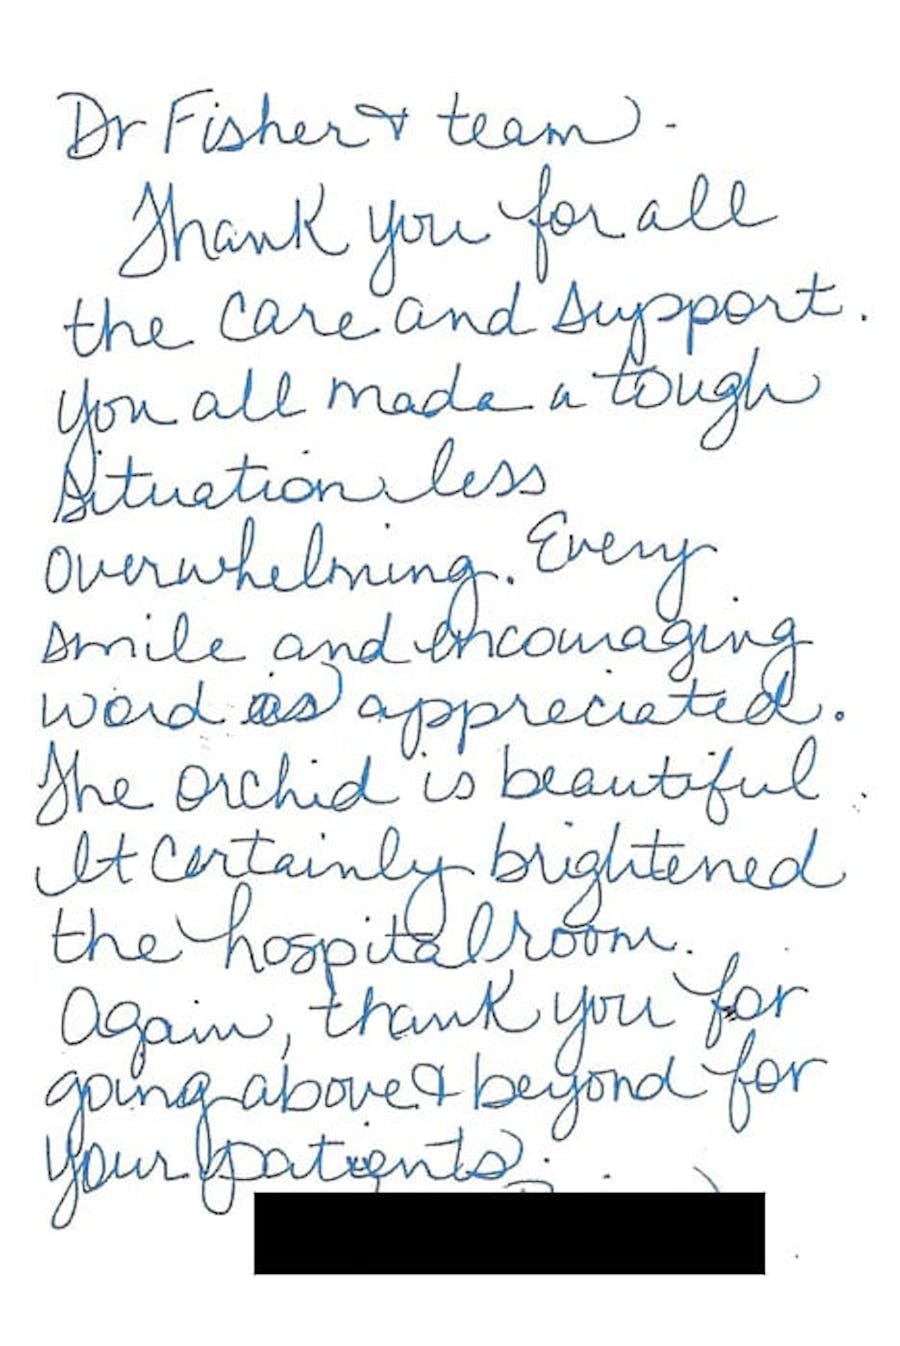 Dr Fisher & team -
Thank you for all
the care and support.
You all made a tough
situation less
overwhelming. Every
smile and encouraging
word is appreciated.
The orchid is beautiful.
It certainly brightened
the hospital room.
Again, thank you for
going above & beyond for
your patients.